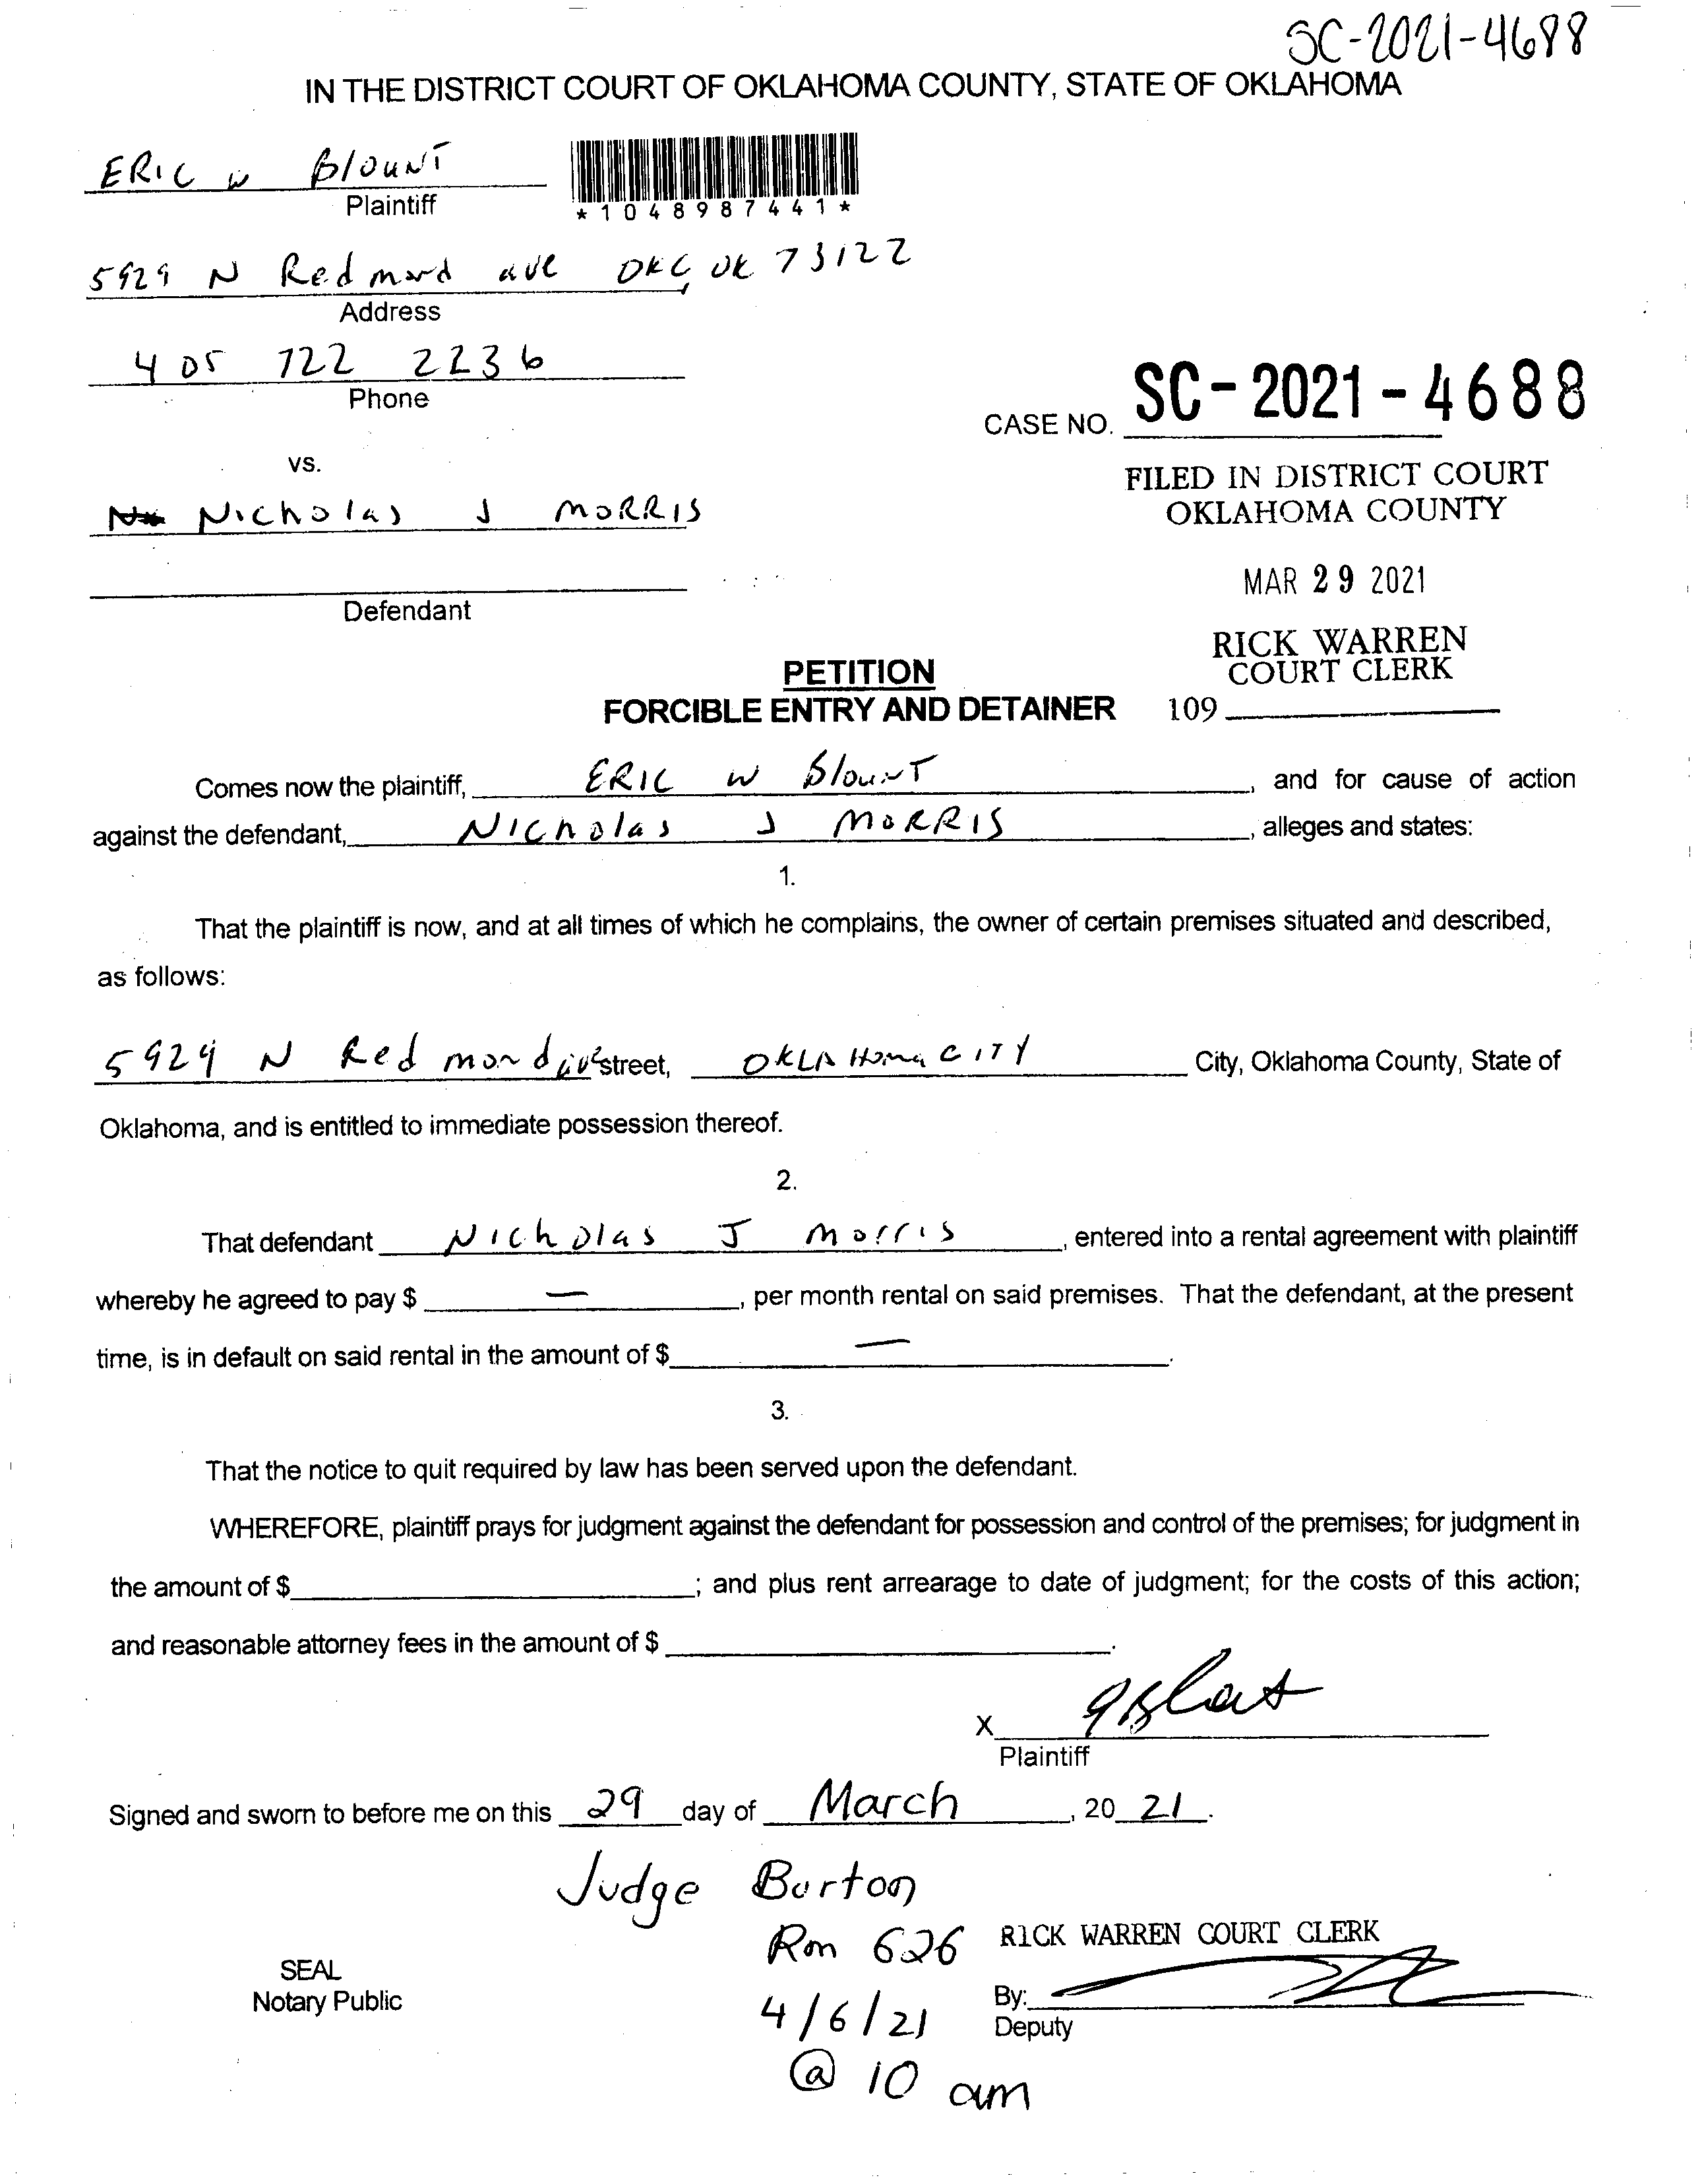 SC-2021-4688
IN THE DISTRICT COURT OF OKLAHOMA COUNTY, STATE OF OKLAHOMA
ERIC W Blount
Plaintiff
*1048987441*
5929 N Redmond ave OKC, OK 73122
Address
405 722 2236
Phone
CASE NO. SC-2021-4688
vs.
FILED IN DISTRICT COURT
OKLAHOMA COUNTY
Nicholas J MORRIS
MAR 29 2021
Defendant
RICK WARREN
COURT CLERK
109
PETITION
FORCIBLE ENTRY AND DETAINER
Comes now the plaintiff, ERIC W Blount, and for cause of action
against the defendant, Nicholas J MORRIS, alleges and states:
1.
That the plaintiff is now, and at all times of which he complains, the owner of certain premises situated and described,
as follows:
5929 N Redmond ave street, OKLAHoma CITY City, Oklahoma County, State of
Oklahoma, and is entitled to immediate possession thereof.
2.
That defendant Nicholas J Morris, entered into a rental agreement with plaintiff
whereby he agreed to pay $ —, per month rental on said premises. That the defendant, at the present
time, is in default on said rental in the amount of $ —.
3.
That the notice to quit required by law has been served upon the defendant.
WHEREFORE, plaintiff prays for judgment against the defendant for possession and control of the premises; for judgment in
the amount of $; and plus rent arrearage to date of judgment; for the costs of this action;
and reasonable attorney fees in the amount of $.
X
Plaintiff
Signed and sworn to before me on this 29 day of March, 20 21.
Judge Burton
Rm 626
4/6/21
@ 10 am
RICK WARREN COURT CLERK
SEAL
Notary Public
By:
Deputy